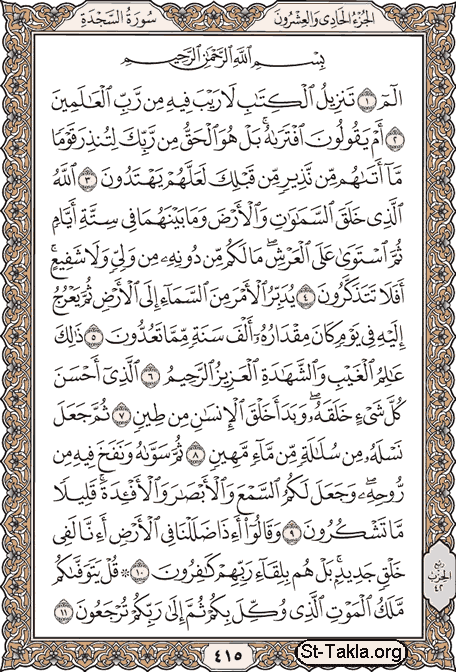 سُورَةُ السَّجْدَةِ الجُزْءُ الحَادِى وَالعِشْرُونَ
بِسْمِ اللَّهِ الرَّحْمَٰنِ الرَّحِيمِ
الٓمٓ ١ تَنزِيلُ ٱلْكِتَٰبِ لَا رَيْبَ فِيهِ مِن رَّبِّ ٱلْعَٰلَمِينَ
٢ أَمْ يَقُولُونَ ٱفْتَرَىٰهُ ۚ بَلْ هُوَ ٱلْحَقُّ مِن رَّبِّكَ لِتُنذِرَ قَوْمًا
مَّآ أَتَىٰهُم مِّن نَّذِيرٍ مِّن قَبْلِكَ لَعَلَّهُمْ يَهْتَدُونَ ٣ ٱللَّهُ
ٱلَّذِى خَلَقَ ٱلسَّمَٰوَٰتِ وَٱلْأَرْضَ وَمَا بَيْنَهُمَا فِى سِتَّةِ أَيَّامٍ
ثُمَّ ٱسْتَوَىٰ عَلَى ٱلْعَرْشِ ۖ مَا لَكُم مِّن دُونِهِۦ مِن وَلِىٍّ وَلَا شَفِيعٍ ۚ
أَفَلَا تَتَذَكَّرُونَ ٤ يُدَبِّرُ ٱلْأَمْرَ مِنَ ٱلسَّمَآءِ إِلَى ٱلْأَرْضِ ثُمَّ يَعْرُجُ
إِلَيْهِ فِى يَوْمٍ كَانَ مِقْدَارُهُۥٓ أَلْفَ سَنَةٍ مِّمَّا تَعُدُّونَ ٥ ذَٰلِكَ
عَٰلِمُ ٱلْغَيْبِ وَٱلشَّهَٰدَةِ ٱلْعَزِيزُ ٱلرَّحِيمُ ٦ ٱلَّذِىٓ أَحْسَنَ
كُلَّ شَىْءٍ خَلَقَهُۥ ۖ وَبَدَأَ خَلْقَ ٱلْإِنسَٰنِ مِن طِينٍ ٧ ثُمَّ جَعَلَ
نَسْلَهُۥ مِن سُلَٰلَةٍ مِّن مَّآءٍ مَّهِينٍ ٨ ثُمَّ سَوَّىٰهُ وَنَفَخَ فِيهِ مِن
رُّوحِهِۦ ۖ وَجَعَلَ لَكُمُ ٱلسَّمْعَ وَٱلْأَبْصَٰرَ وَٱلْأَفْـِٔدَةَ ۚ قَلِيلًا
مَّا تَشْكُرُونَ ٩ وَقَالُوٓا۟ أَءِذَا ضَلَلْنَا فِى ٱلْأَرْضِ أَءِنَّا لَفِى
خَلْقٍ جَدِيدٍۭ ۚ بَلْ هُم بِلِقَآءِ رَبِّهِمْ كَٰفِرُونَ ١٠ ۞ قُلْ يَتَوَفَّىٰكُم
مَّلَكُ ٱلْمَوْتِ ٱلَّذِى وُكِّلَ بِكُمْ ثُمَّ إِلَىٰ رَبِّكُمْ تُرْجَعُونَ ١١
ربع
الحزب
٤٢
٤١٥
St-Takla.org